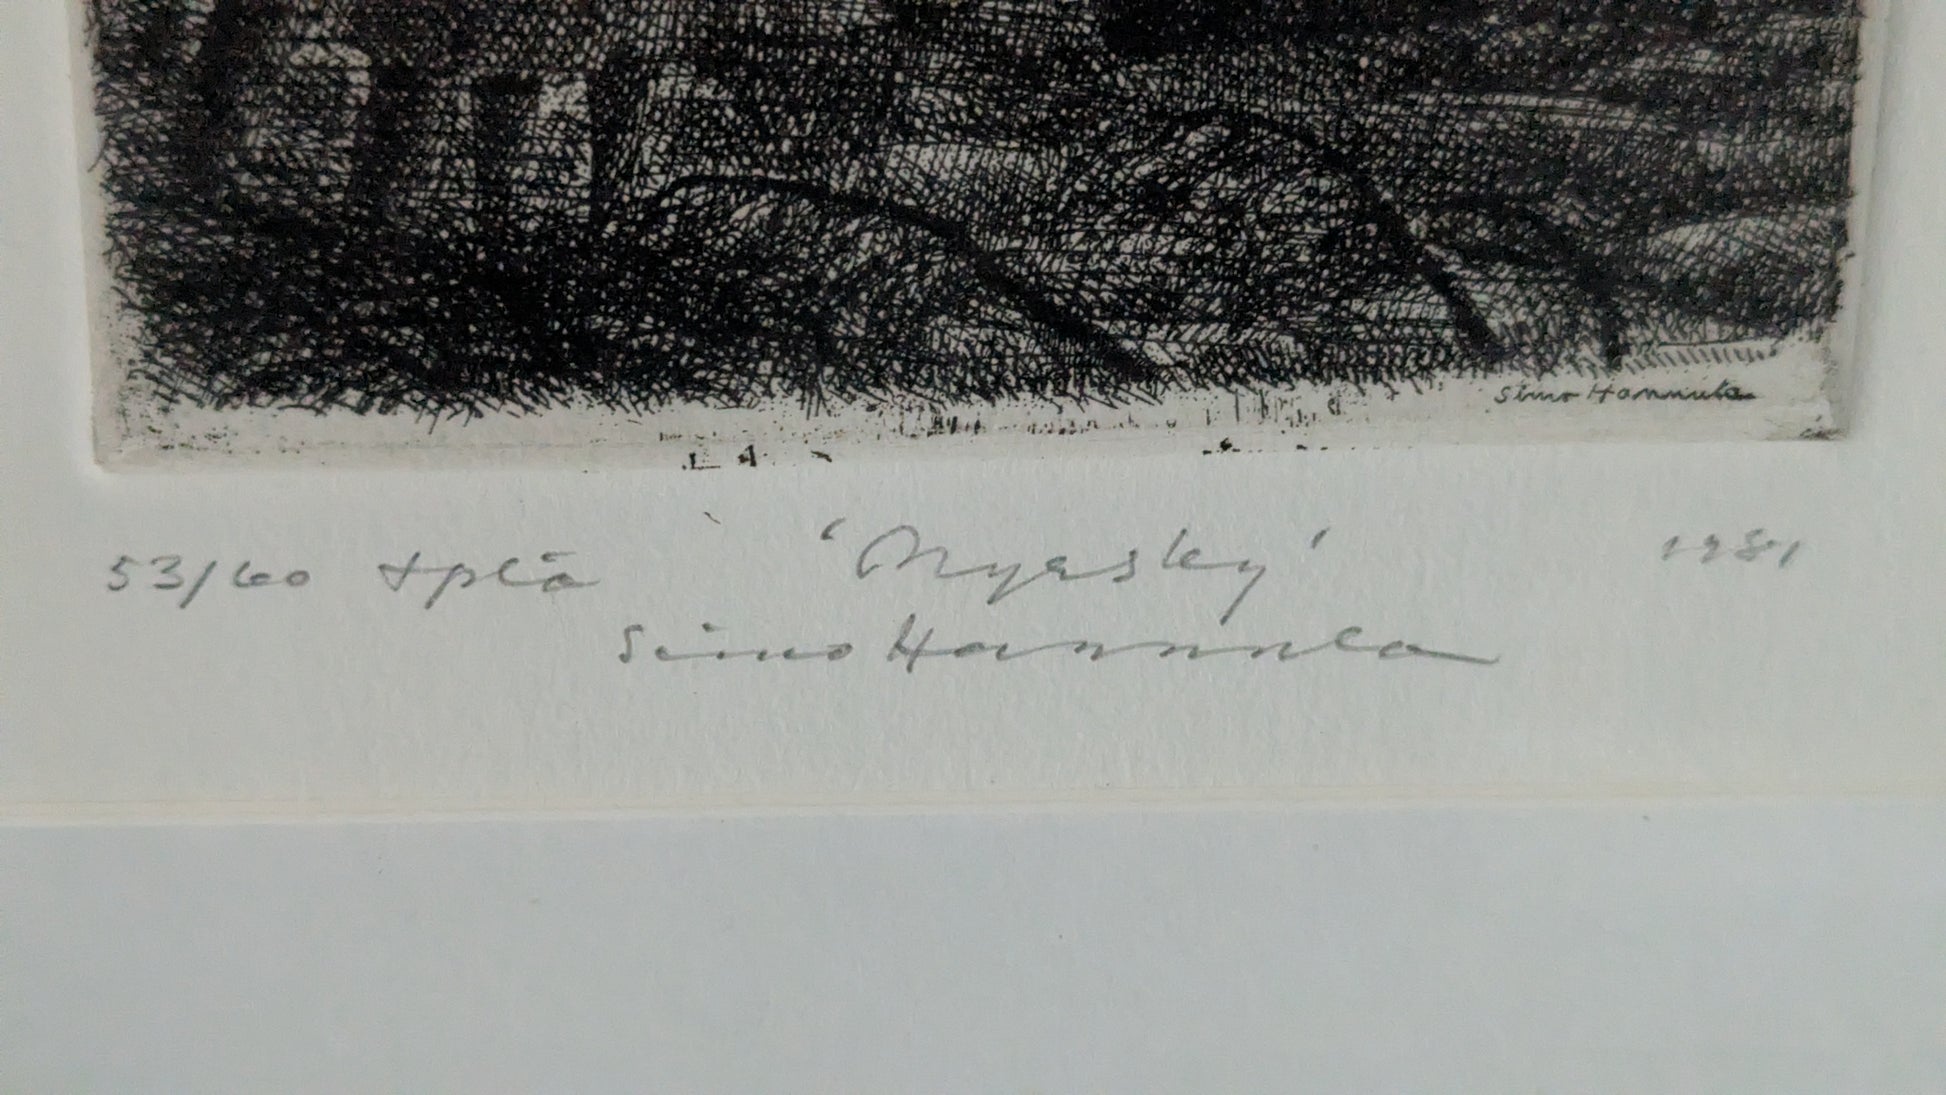 Simo Hannula
53/60 tplä 'Myrsky' 1981
Simo Hannula